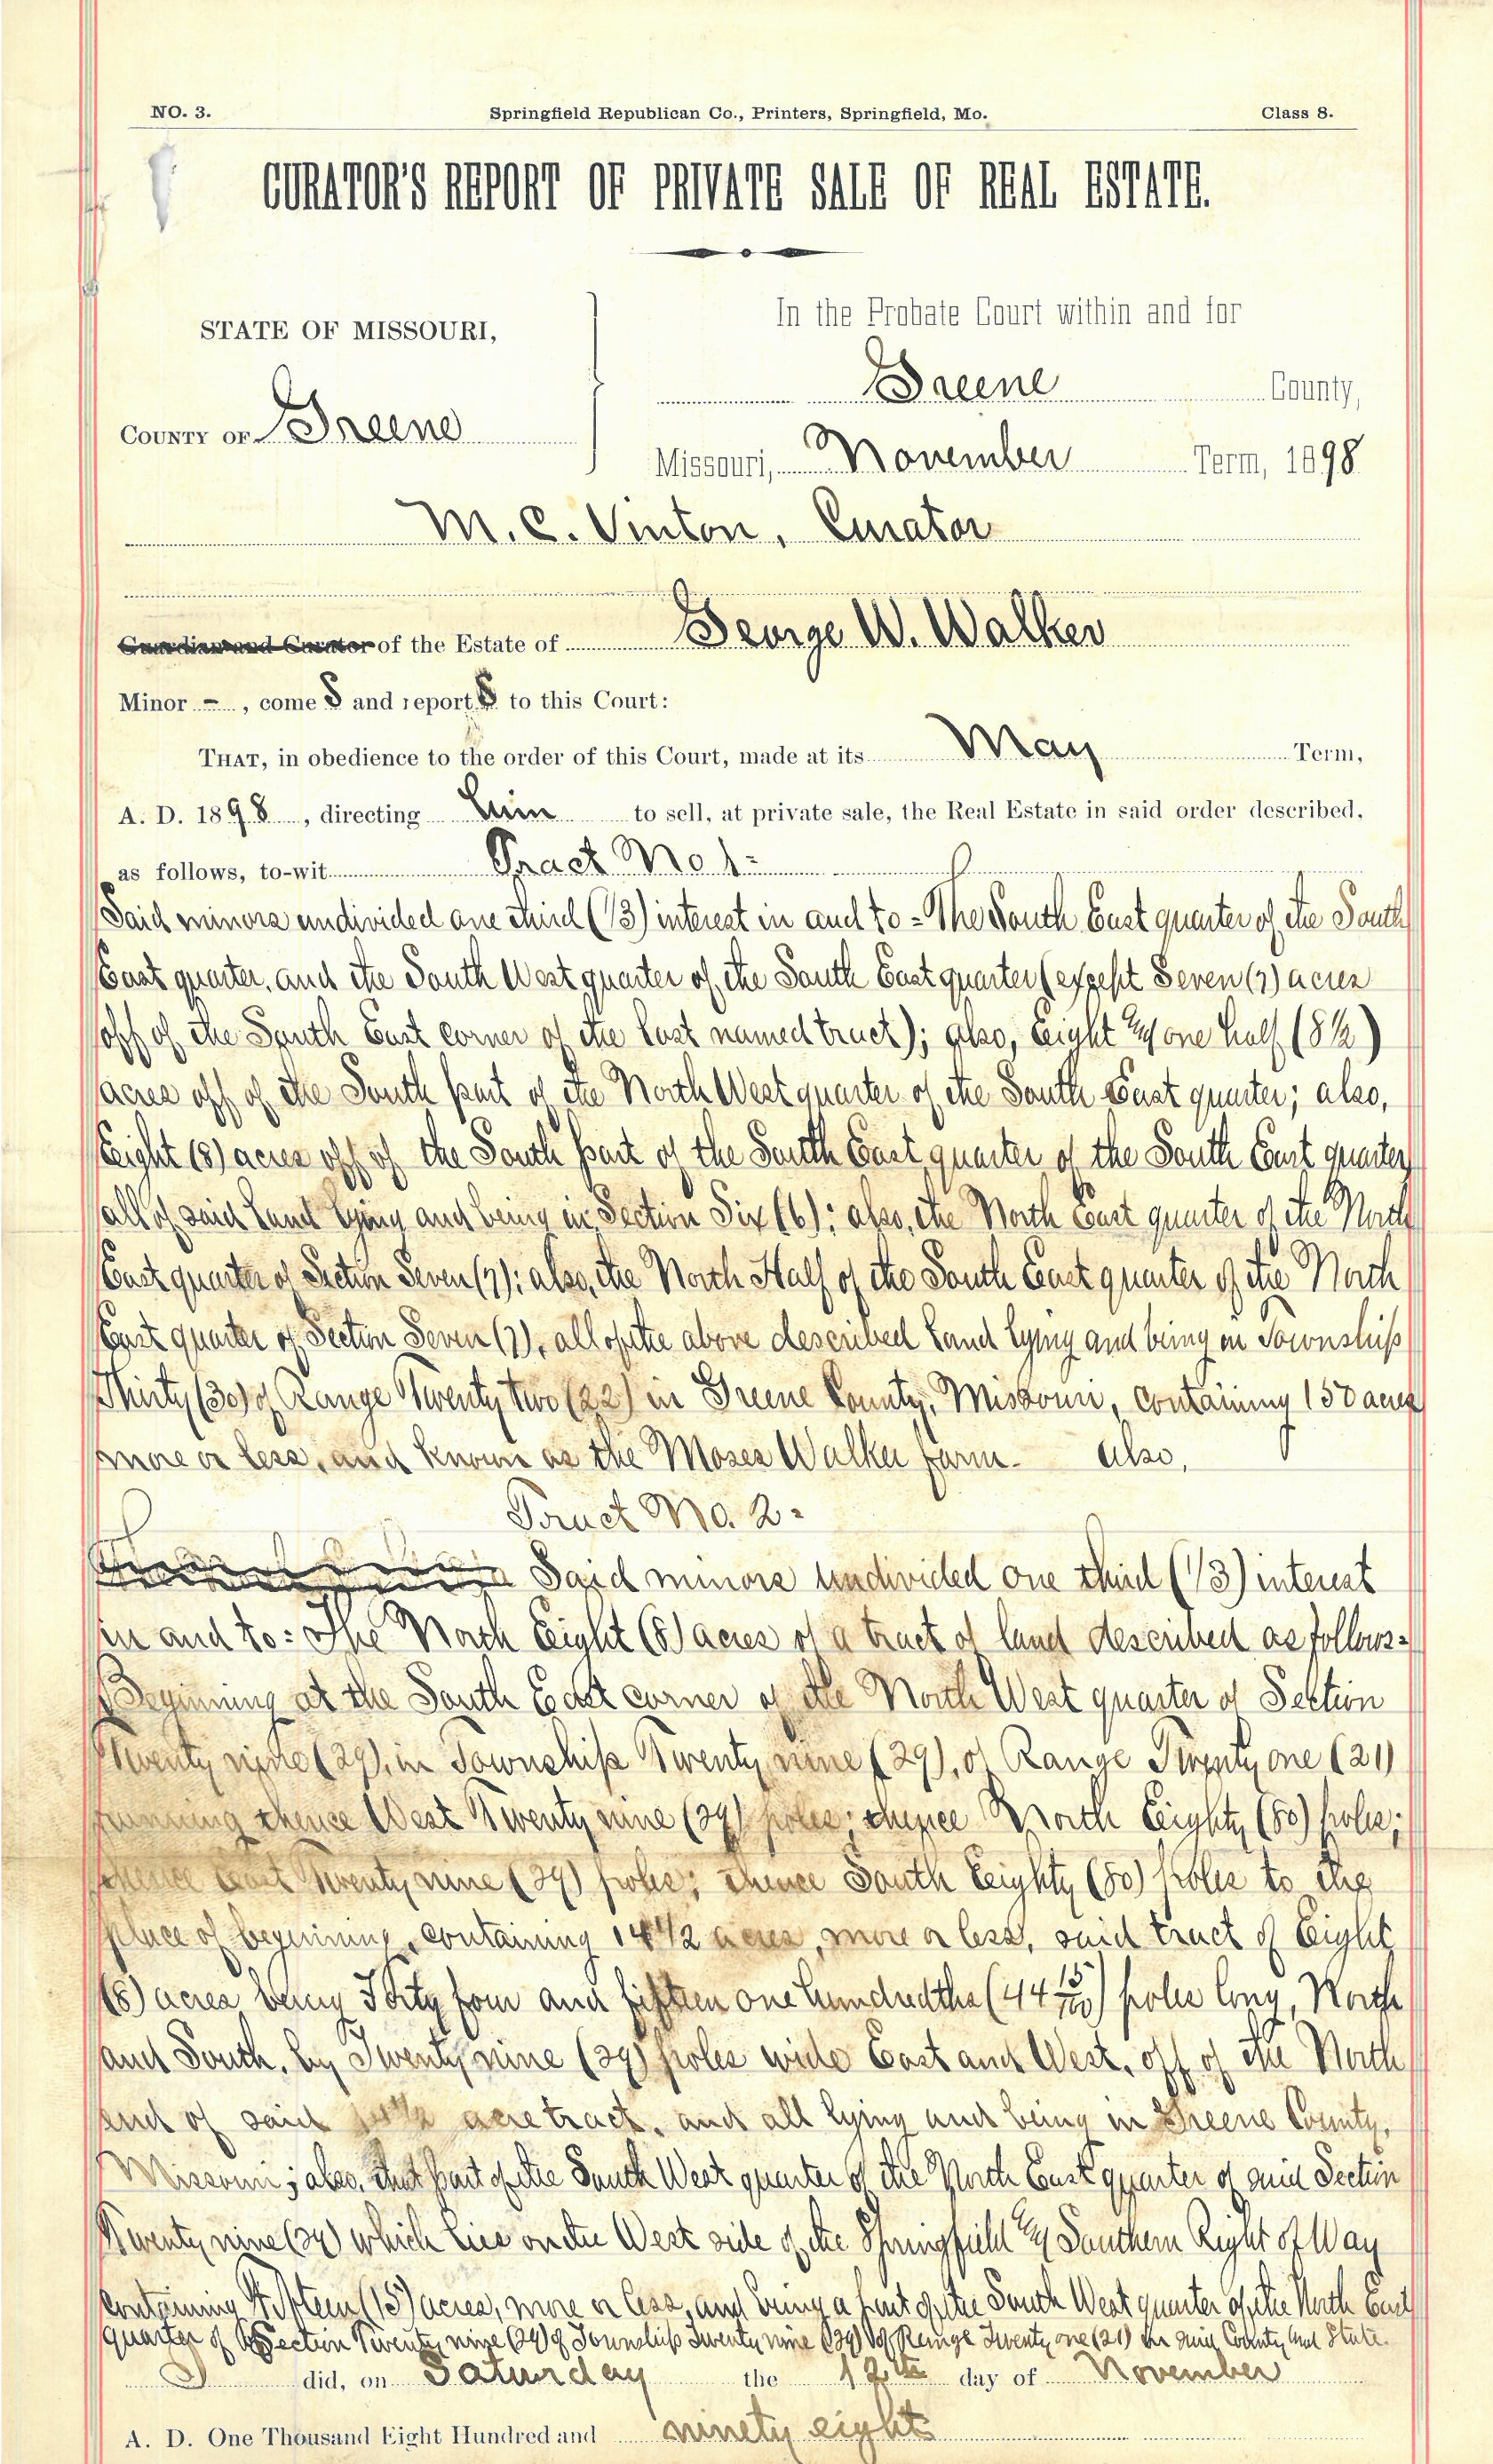 NO. 3. Springfield Republican Co., Printers, Springfield, Mo. Class 8.
CURATOR'S REPORT OF PRIVATE SALE OF REAL ESTATE.
STATE OF MISSOURI,
COUNTY OF Greene
In the Probate Court within and for
Greene County,
Missouri, November Term, 1898
M. C. Vinton, Curator
Guardian and Curator of the Estate of George W. Walker
Minor - , come s and report s to this Court:
THAT, in obedience to the order of this Court, made at its May Term,
A. D. 1898 , directing him to sell, at private sale, the Real Estate in said order described,
as follows, to-wit Tract No 1-
Said minors undivided one third (1/3) interest in and to = The South East quarter of the South
East quarter, and the South West quarter of the South East quarter (except Seven (7) acres
off of the South East corner of the last named tract); also, Eight & one half (8½)
acres off of the South part of the North West quarter of the South East quarter; also,
Eight (8) acres off of the South part of the South East quarter of the South East quarter
all of said land lying and being in Section Six (6); also, the North East quarter of the North
East quarter of Section Seven (7); also, the North Half of the South East quarter of the North
East quarter of Section Seven (7), all of the above described land lying and being in Township
Thirty (30) of Range Twenty two (22) in Greene County, Missouri, containing 150 acres
more or less, and known as the Moses Walker farm. Also,
Tract No. 2-
Said minors undivided one third (1/3) interest
in and to: The North Eight (8) acres of a tract of land described as follows:
Beginning at the South East corner of the North West quarter of Section
Twenty nine (29), in Township Twenty nine (29), of Range Twenty one (21)
running thence West Twenty nine (29) poles; thence North Eighty (80) poles;
thence East Twenty nine (29) poles; thence South Eighty (80) poles to the
place of beginning, containing 14½ acres, more or less, said tract of Eight
(8) acres being Forty four and fifteen one hundredths (44 15/100) poles long, North
and South, by Twenty nine (29) poles wide East and West, off of the North
end of said 14½ acre tract, and all lying and being in Greene County,
Missouri; also, that part of the South West quarter of the North East quarter of said Section
Twenty nine (29) which lies on the West side of the Springfield & Southern Right of Way
containing Fifteen (15) acres, more or less, and being a part of the South West quarter of the North East
quarter of Section Twenty nine (29) of Township Twenty nine (29) of Range Twenty one (21) in said County and State.
did, on Saturday the 12th day of November
A. D. One Thousand Eight Hundred and ninety eight